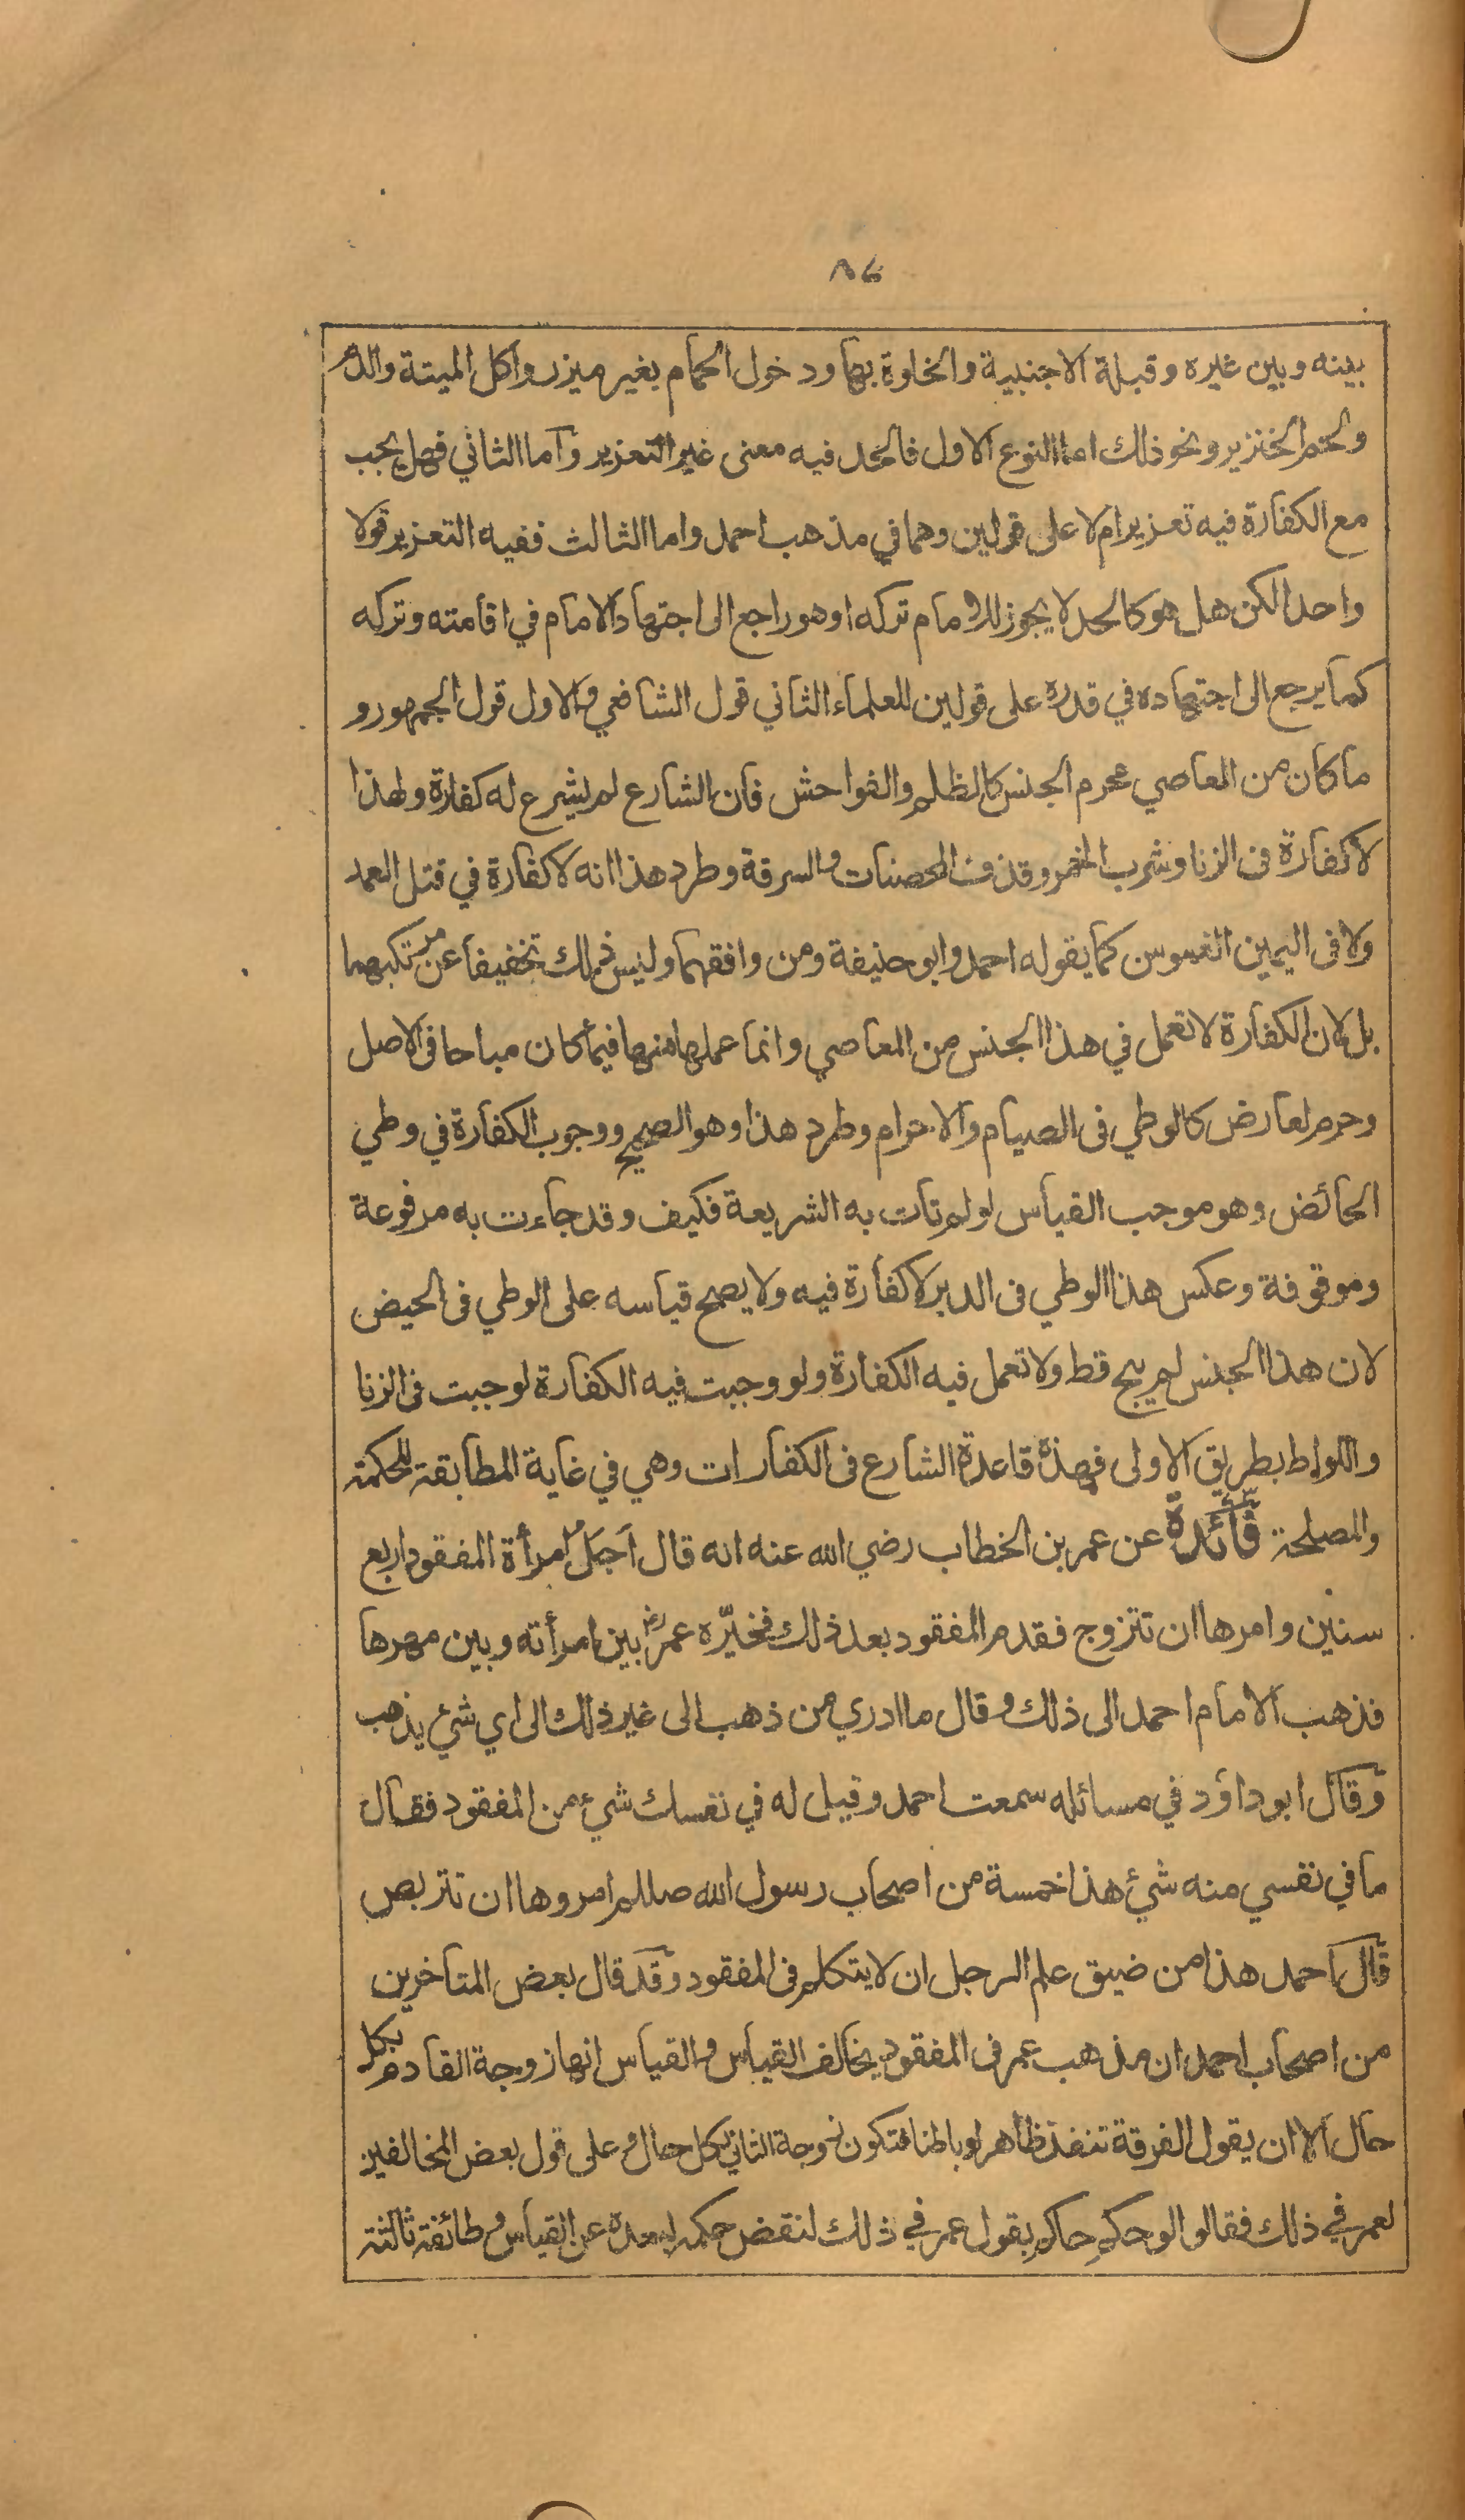 ٨٤
بينه وبين غيره وقبلة الاجنبية والخلوة بها ودخول الحمام بغير ميزر واكل الميتة والدم
ولحم الخنزير ونحو ذلك اما النوع الاول فالحد فيه معنى غير التعزير واما الثاني فهل يجب
مع الكفارة فيه تعزير ام لا على قولين وهما في مذهب احمد واما الثالث ففيه التعزير قولا
واحدا لكن هل هو كالحد لا يجوز للامام تركه او هو راجع الى اجتهاد الامام في اقامته وتركه
كما يرجع الى اجتهاده في قدره على قولين للعلماء الثاني قول الشافعي والاول قول الجمهور و
ما كان من المعاصي محرم الجنس كالظلم والفواحش فان الشارع لم يشرع له كفارة ولهذا
لا كفارة فى الزنا وشرب الخمر وقذف المحصنات والسرقة وطرد هذا انه لا كفارة في قتل العمد
ولا فى اليمين الغموس كما يقوله احمد وابو حنيفة ومن وافقهما وليس ذلك تخفيفا عن مرتكبهما
بل لان الكفارة لا تعمل في هذا الجنس من المعاصي وانما عملها منها فيما كان مباحا فى الاصل
وحرم لعارض كالوطي فى الصيام والاحرام وطرد هذا وهو الصحيح ووجوب الكفارة في وطي
الحائض وهو موجب القياس لو لم تات به الشريعة فكيف وقد جاءت به مرفوعة
وموقوفة وعكس هذا الوطي فى الدبر لا كفارة فيه ولا يصح قياسه على الوطي فى الحيض
لان هذا الجنس لم يبح قط ولا تعمل فيه الكفارة ولو وجبت فيه الكفارة لوجبت فى الزنا
واللواط بطريق الاولى فهذه قاعدة الشارع فى الكفارات وهي في غاية المطابقة للحكمة
والمصلحة فائدة عن عمر بن الخطاب رضي الله عنه انه قال اجل امرأة المفقود اربع
سنين وامرها ان تتزوج فقدم المفقود بعد ذلك فخيّره عمر رض بين امرأته وبين مهرها
فذهب الامام احمد الى ذلك وقال ما ادري من ذهب الى غير ذلك الى اي شئ يذهب
وقال ابو داؤد في مسائله سمعت احمد وقيل له في نفسك شيء من المفقود فقال
ما في نفسي منه شئ هذا خمسة من اصحاب رسول الله صللم امروها ان تتربص
قال احمد هذا من ضيق علم الرجل ان لا يتكلم فى المفقود وقد قال بعض المتاخرين
من اصحاب احمد ان مذهب عمر فى المفقود يخالف القياس والقياس انها زوجة القادم بكل
حال الا ان يقول الفرقة تنفذ ظاهرا وباطنا فتكون زوجة الثاني بكل حال وعلى قول بعض المخالفين
لعمر في ذلك فقالوا لو حكم حاكم بقول عمر في ذلك لنقض حكمه لبعده عن القياس وطائفة ثالثة